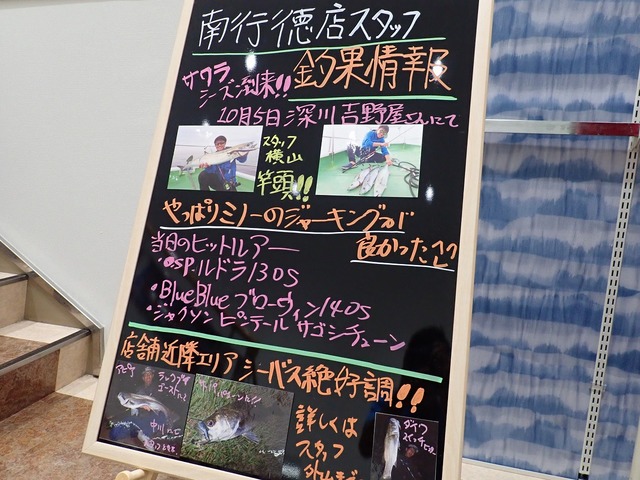 南行徳店スタッフ
釣果情報
サワラ
シーズン到来!!
10月5日深川吉野屋さんにて
スタッフ
横山
竿頭!!
やっぱりミノーのジャーキングが
良かった
当日のヒットルアー
・OSP.ルドラ130S
・BlueBlue ブローウィン140S
・ジャクソン ピンテール サゴシチューン
店舗近隣エリア シーバス絶好調!!
詳しくは
スタッフ